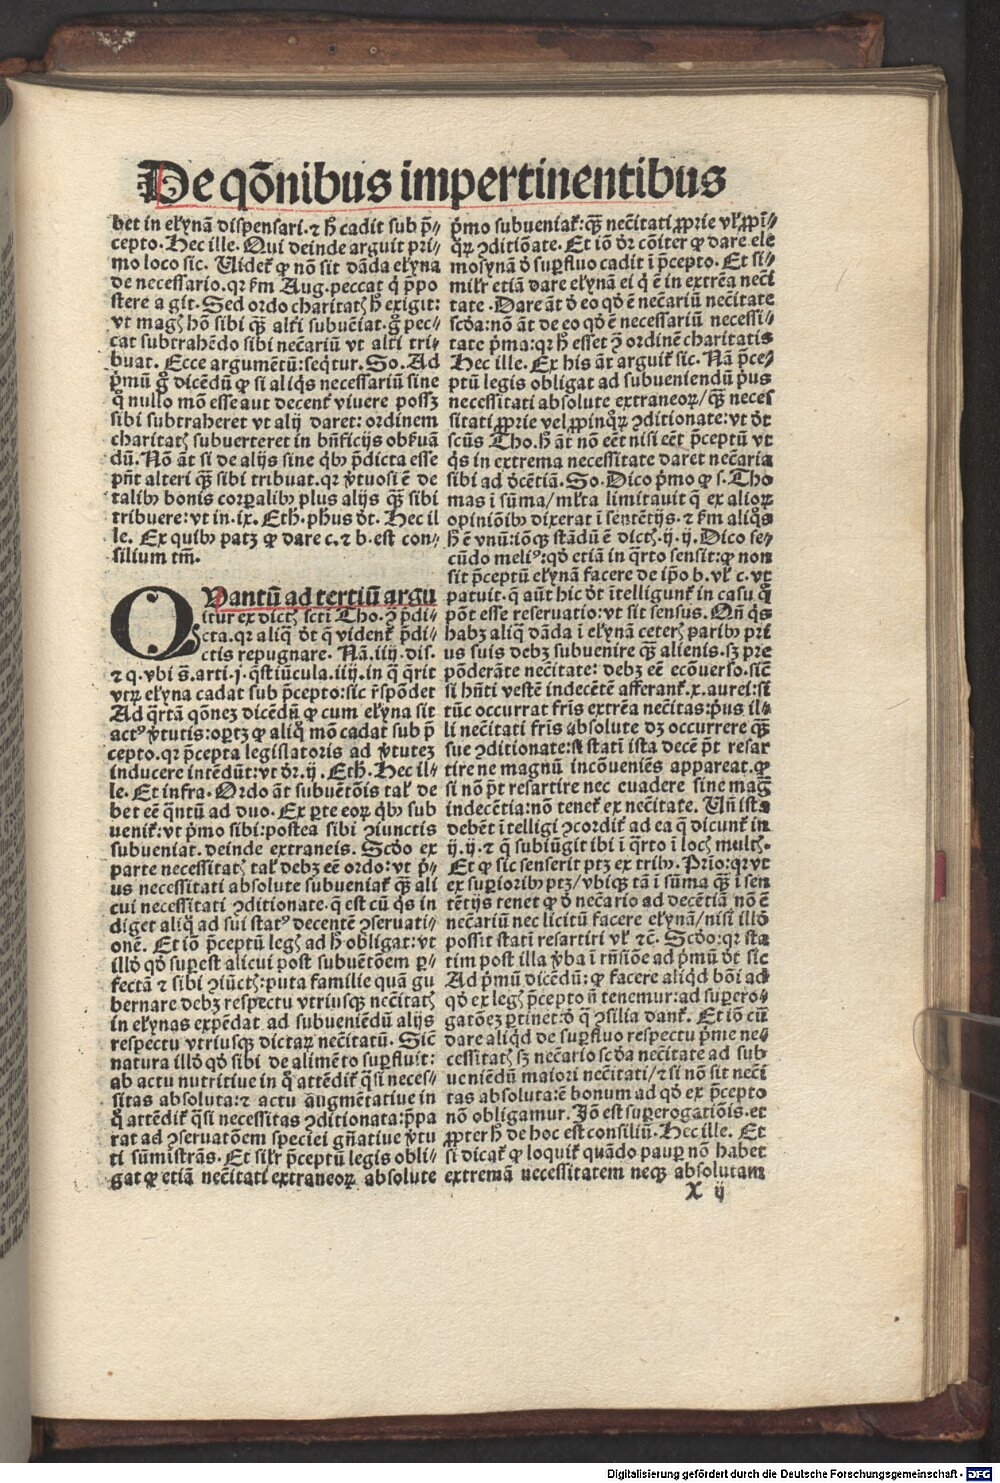 De qōnibus impertinentibus
bet in elynā dispensari. ⁊ h̄ cadit sub p̄//
cepto. Hec ille. Qui deinde arguit pri//
mo loco sic. Videt᷑ ꝙ nō sit dāda elyna
de necessario. qr k̄m Aug. peccat q̄ p̄po
stere agit. Sed ordo charitatꝭ h̄ exigit:
vt magꝭ hō sibi q̄ꝫ alt̄i subueniat. g̊ pec//
cat subtrahēdo sibi nec̄ariū vt alti tri//
buat. Ecce argumētū: seqr̄tur. So. Ad
p̄mū g̊ dicēdū ꝙ si aliq̄s necessariū sine
q̊ nullo mō esse aut decent᷑ viuere possꝫ
sibi subtraheret vt alij daret: ordinem
charitatꝭ subuerteret in bn̄ficijs obt᷑uā
dū. Nō āt si de alijs sine qbꝰ p̄dicta esse
pn̄t alteri q̄ꝫ sibi tribuat. qr v̄tuosi ē de
talibꝰ bonis corꝑalibꝰ plus alijs q̄ꝫ sibi
tribuere: vt in. ix. Eth. ph̄us ōt. Hec il
le. Ex quibꝰ patꝫ ꝙ dare c. ⁊ b. est con//
silium tm̄.
QVantū ad tertiū argu
itur ex dictꝭ scti Tho. ꝯ p̄di//
cta. qr aliq̄ ōt q̄ vident᷑ p̄di//
ctis repugnare. Nā. iiij. dis.
⁊ q. vbi s̄. arti. j. q̄stiūcula. iiij. in q̄ q̄rit
vtꝝ elyna cadat sub p̄cepto: sic r̄spōdet
Ad q̄rtā qōneꝫ dicēdū ꝙ cum elyna sit
actꝰ v̄tutis: oꝑtꝫ ꝙ aliq̊ mō cadat sub p̄
cepto. qr p̄cepta legislatoris ad v̄tuteꝫ
inducere intēdūt: vt ōr. ij. Eth. Hec il//
le. Et infra. Ordo āt subuētōis tal᷑ de
bet eē q̄ntū ad duo. Ex ꝑte eoꝝ qbꝰ sub
uenit᷑: vt p̄mo sibi: postea sibi ꝯiunctis
subueniat. deinde extraneis. Scd̄o ex
parte necessitatꝭ tal᷑ debꝫ eē ordo: vt p̄//
us necessitati absolute subueniat᷑ q̄ꝫ ali
cui necessitati ꝯditionate. q̄ est cū q̄s in
diget aliq̊ ad sui statꝰ decentē ꝯseruati//
onē. Et iō p̄ceptū legꝭ ad h̄ obligat: vt
illd̄ qd̄ suꝑest alicui post subuētōem ꝑ//
fectā ⁊ sibi ꝯiūctꝭ: puta familie quā gu
bernare debꝫ respectu vtriusqꝫ nec̄itatꝭ
in elynas expēdat ad subueniēdū alijs
respectu vtriusqꝫ dictaꝝ nec̄itatū. Sic̄
natura illd̄ qd̄ sibi de alimēto suꝑfluit:
ab actu nutritiue in q̊ attēdit᷑ q̄si neces//
sitas absoluta: ⁊ actu augmētatiue in
q̊ attēdit᷑ q̄si necessitas ꝯditionata: p̄pa
rat ad ꝯseruatōem speciei gn̄atiue v̄tu
ti sūmistrās. Et silr p̄ceptū legis obli//
gat ꝙ etiā nec̄itati extraneoꝝ absolute
p̄mo subueniat᷑: q̄ꝫ nec̄itati ꝓprie vl᷑ ꝓpī//
q̊ꝝ ꝯditiōate. Et iō ōr cōiter ꝙ dare ele
mosynā ō suꝑfluo cadit ī p̄cepto. Et si//
milr etiā dare elynā ei q̄ ē in extrēa nec̄i
tate. Dare āt ō eo qd̄ ē nec̄ariū nec̄itate
scd̄a: nō āt de eo qd̄ ē necessariū necessi//
tate p̄ma: qr h̄ esset ꝯ ordinē charitatis
Hec ille. Ex his āt arguit᷑ sic. Nā p̄ce//
ptū legis obligat ad subueniendū p̄us
necessitati absolute extraneoꝝ/ q̄ꝫ neces
sitati ꝓprie vel ꝓpinq̊ꝝ ꝯditionate: vt ōt
scūs Tho. h̄ āt nō eēt nisi eēt p̄ceptū vt
q̄s in extrema necessitate daret nec̄aria
sibi ad ōcētiā. So. Dico p̄mo ꝙ s. Tho
mas ī sūma/ ml̄ta limitauit q̄ ex alioꝝ
opiniōibꝰ dixerat ī sentētijs. ⁊ k̄m aliq̊s
h̄ ē vnū: iōqꝫ stādū ē dictꝭ. ij. ij. Dico se//
cūdo meliꝰ: qd̄ etiā in q̄rto sensit: ꝙ non
sit p̄ceptū elynā facere de ip̄o b. vl᷑ c. vt
patuit. q̄ aūt hic ōt ītelligunt᷑ in casu q̊
pōt esse reseruatio: vt sit sensus. Qn̄ q̄s
habꝫ aliq̄ dāda ī elynā ceterꝭ paribꝰ pri
us suis debꝫ subuenire q̄ꝫ alienis. sꝫ pre
pōderāte nec̄itate: debꝫ eē ecōuerso. sic̄
si hn̄ti vestē indecētē afferant᷑. x. aurei: si
tūc occurrat fr̄is extrēa nec̄itas: p̄us il//
li nec̄itati fr̄is absolute dꝫ occurrere q̄ꝫ
sue ꝯditionate: si stati ista decē p̄t resar
tire ne magnū incōueniēs appareat. ꝙ
si nō p̄t resartire nec euadere sine mag̊
indecētia: nō tenet᷑ ex nec̄itate. Vn̄ ista
debēt ītelligi ꝯcordit᷑ ad ea q̄ dicunt᷑ in
ij. ij. ⁊ q̄ subiūgit ibi ī q̄rto ī locꝭ multꝭ.
Et ꝙ sic senserit ptꝫ ex tribꝰ. Prīo: qr vt
ex suꝑioribꝰ ptꝫ/ vbiqꝫ tā ī sūma q̄ꝫ ī sen
tētijs tenet ꝙ ō nec̄ario ad decētiā nō ē
nec̄ariū nec licitū facere elynā/ nisi illd̄
possit stati resartiri vl᷑ ⁊c̄. Scd̄o: qr sta
tim post illa v̄ba ī rn̄siōe ad p̄mū ōt sic
Ad p̄mū dicēdū: ꝙ facere aliqd bōi ad
qd̄ ex legꝭ p̄cepto n̄ tenemur: ad suꝑero//
gatōeꝫ ꝑtinet: ō q̄ ꝯsilia dant᷑. Et iō cū
dare aliqd de suꝑfluo respectu p̄me ne//
cessitatꝭ sꝫ nec̄ario scd̄a nec̄itate ad sub
ueniēdū maiori nec̄itati/ ⁊ si nō sit nec̄i
tas absoluta: ē bonum ad qd̄ ex p̄cepto
nō obligamur. Iō est suꝑerogatiōis. et
ꝓpter h̄ de hoc est consiliū. Hec ille. Et
si dicat᷑ ꝙ loquit᷑ quādo pauꝑ nō habet
extremā necessitatem neqꝫ absolutam
X ij
Digitalisierung gefördert durch die Deutsche Forschungsgemeinschaft - DFG